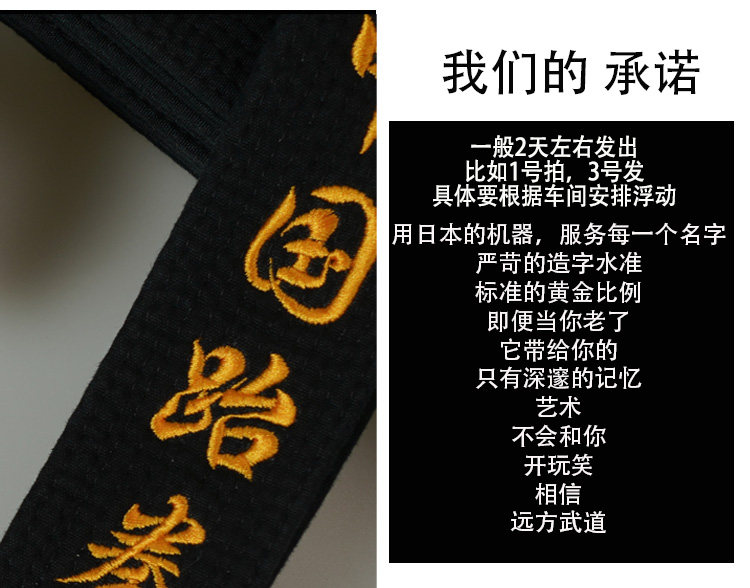 国
跆
拳
我们的 承诺
一般2天左右发出
比如1号拍，3号发
具体要根据车间安排浮动
用日本的机器，服务每一个名字
严苛的造字水准
标准的黄金比例
即便当你老了
它带给你的
只有深邃的记忆
艺术
不会和你
开玩笑
相信
远方武道